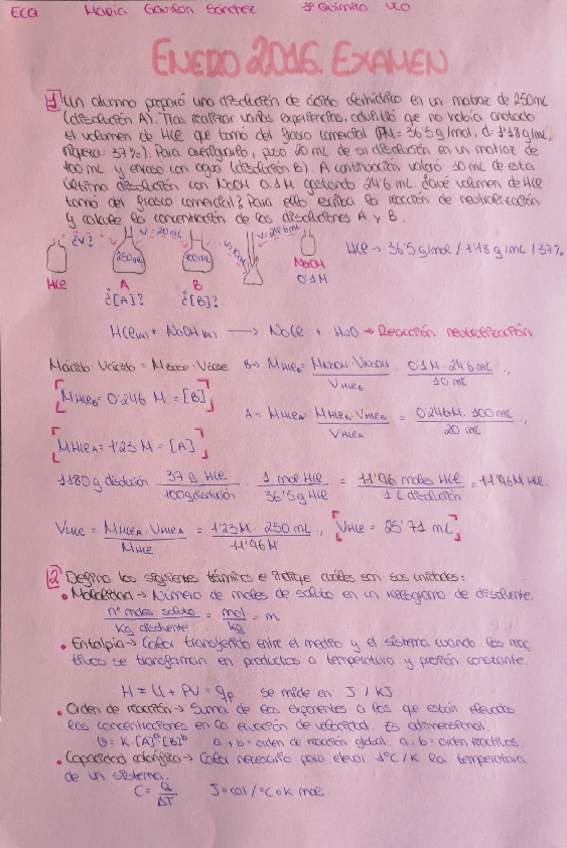 ECA María Garrón Sánchez 1º Química UCO
ENERO 2016. EXAMEN
1 Un alumno preparó una disolución de ácido clorhídrico en un matraz de 250 mL
(disolución A). Tras realizar varias experiencias, advirtió que no había anotado
el volumen de HCl que tomó del frasco comercial (PM = 36'5 g/mol, d = 1'18 g/mL,
riqueza: 37%). Para averiguarlo, puso 20 mL de su disolución en un matraz de
100 mL y enrasó con agua (disolución B). A continuación valoró 10 mL de esta
última disolución con NaOH 0'1M gastando 24'6 mL. ¿Qué volumen de HCl
tomó del frasco comercial? Para ello escriba la reacción de neutralización
y calcule la concentración de las disoluciones A y B.
¿V? V = 20 mL V = 10 mL V = 24'6 mL
250 mL 100 mL
HCl → 36'5 g/mol / 1'18 g/mL / 37%
HCl A B NaOH
¿[A]? ¿[B]? 0'1M
HCl(ac) + NaOH(ac) ⟶ NaCl + H2O → Reacción neutralización
Mácido · Vácido = Mbase · Vbase B→ MHClB = MNaOH · VNaOH / VHClB = 0'1M · 24'6 mL / 10 mL ;
[MHClB = 0'246 M = [B]]
A→ MHClA = MHClB · VHClB / VHClA = 0'246M · 100 mL / 20 mL ;
[MHClA = 1'23 M = [A]]
1180 g disolución · 37 g HCl / 100 g disolución · 1 mol HCl / 36'5 g HCl = 11'96 moles HCl / 1 L disolución = 11'96M HCl.
VHCl = MHClA · VHClA / MHCl = 1'23M · 250 mL / 11'96M ; [VHCl = 25'71 mL]
2 Defina los siguientes términos e indique cuáles son sus unidades:
• Molalidad → Número de moles de soluto en un kilogramo de disolvente.
nº moles soluto / Kg disolvente = mol / kg = m
• Entalpía → Calor transferido entre el medio y el sistema cuando los reac
tivos se transforman en productos a temperatura y presión constante.
H = U + PV = qp se mide en J / KJ
• Orden de reacción → Suma de los exponentes a los que están elevados
las concentraciones en la ecuación de velocidad. Es adimensional.
v = K · [A]ᵃ [B]ᵇ a + b = orden de reacción global. a, b = orden reactivos.
• Capacidad calorífica → Calor necesario para elevar 1ºC/K la temperatura
de un sistema.
C = Q / ΔT J o cal / ºC o K mol